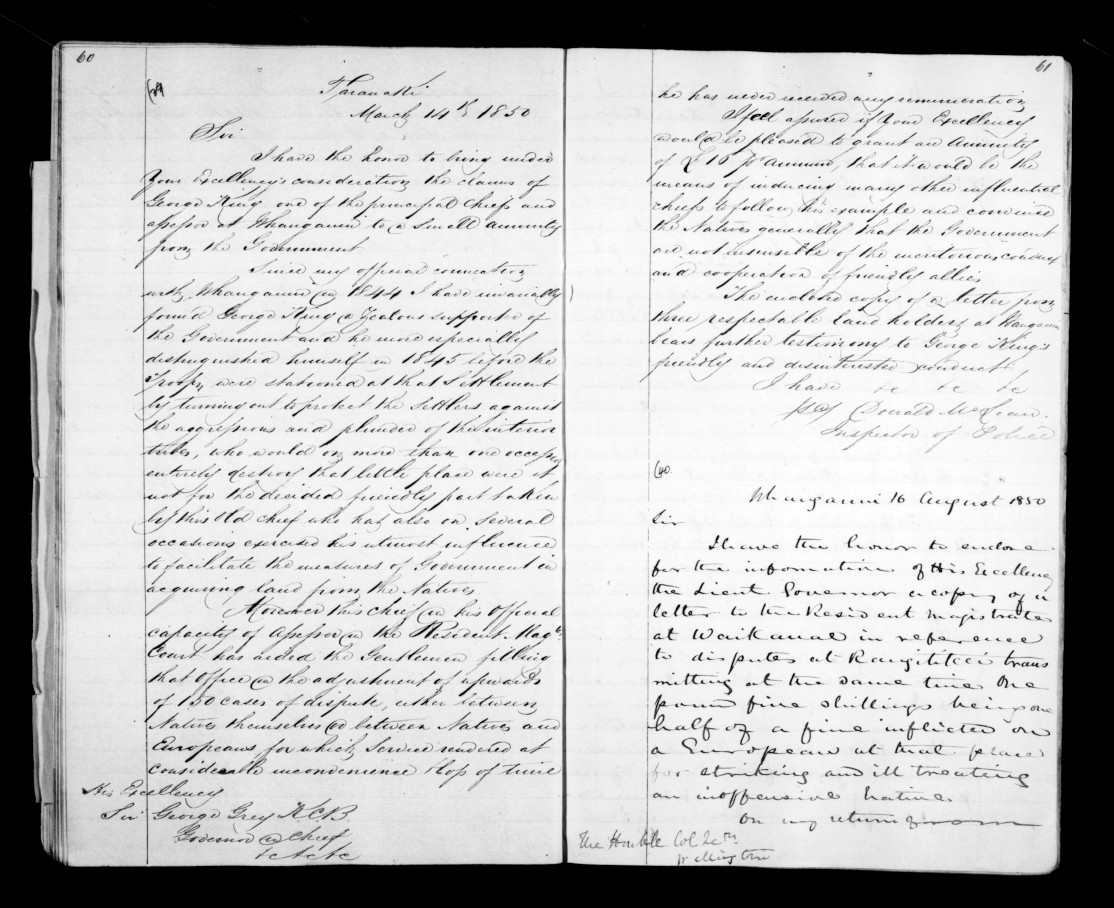 60
(39
Taranaki
March 14th 1850
Sir
I have the honor to bring under
Your Excellency's consideration the claims of
George King one of the principal Chiefs and
assessor at Whanganui to a small annuity
from the Government
Since my official connection
with Whanganui in 1844 I have invariably
found George King a Zealous supporter of
the Government and he more especially
distinguished himself in 1845 before the
Troops were stationed at that Settlement
by turning out to protect the Settlers against
the aggressions and plunder of the interior
tribes, who would on more than one occasion
entirely destroy that little place were it
not for the decided friendly part taken
by this Old chief who has also on several
occasions exercised his utmost influence
to facilitate the measures of Government in
acquiring land from the Natives
Moreover this chief in his Official
capacity of Assessor in the Resident Magts
Court has aided the Gentlemen filling
that Office in the adjustment of upwards
of 150 cases of dispute, either between
Natives themselves or between Natives and
Europeans, for which Service rendered at
considerable inconvenience & loss of time
His Excellency
Sir George Grey K.C.B.
Governor in Chief
&c &c &c
61
he has never received any remuneration
I feel assured if Your Excellency
would be pleased to grant an Annuity
of £16 pr Annum, that it would be the
means of inducing many other influential
chiefs to follow his example and convince
the Natives generally that the Government
are not insensible of the meritorious conduct
and cooperation of friendly allies
The enclosed copy of a letter from
three respectable land holders at Wanganui
bears further testimony to George King's
friendly and disinterested conduct
I have &c &c &c
Donald McLean.
Inspector of Police
(40
Whanganui 16 August 1850
Sir
I have the honor to enclose
for the information of His Excellency
the Lieut Governor a copy of a
letter to the Resident Magistrate
at Waikanae in reference
to disputes at Rangitikei trans
mitting at the same time One
pound five shillings being one
half of a fine inflicted on
a European at that place
for striking and ill treating
an inoffensive Native
On my return from
The Honble Col Secty
Wellington